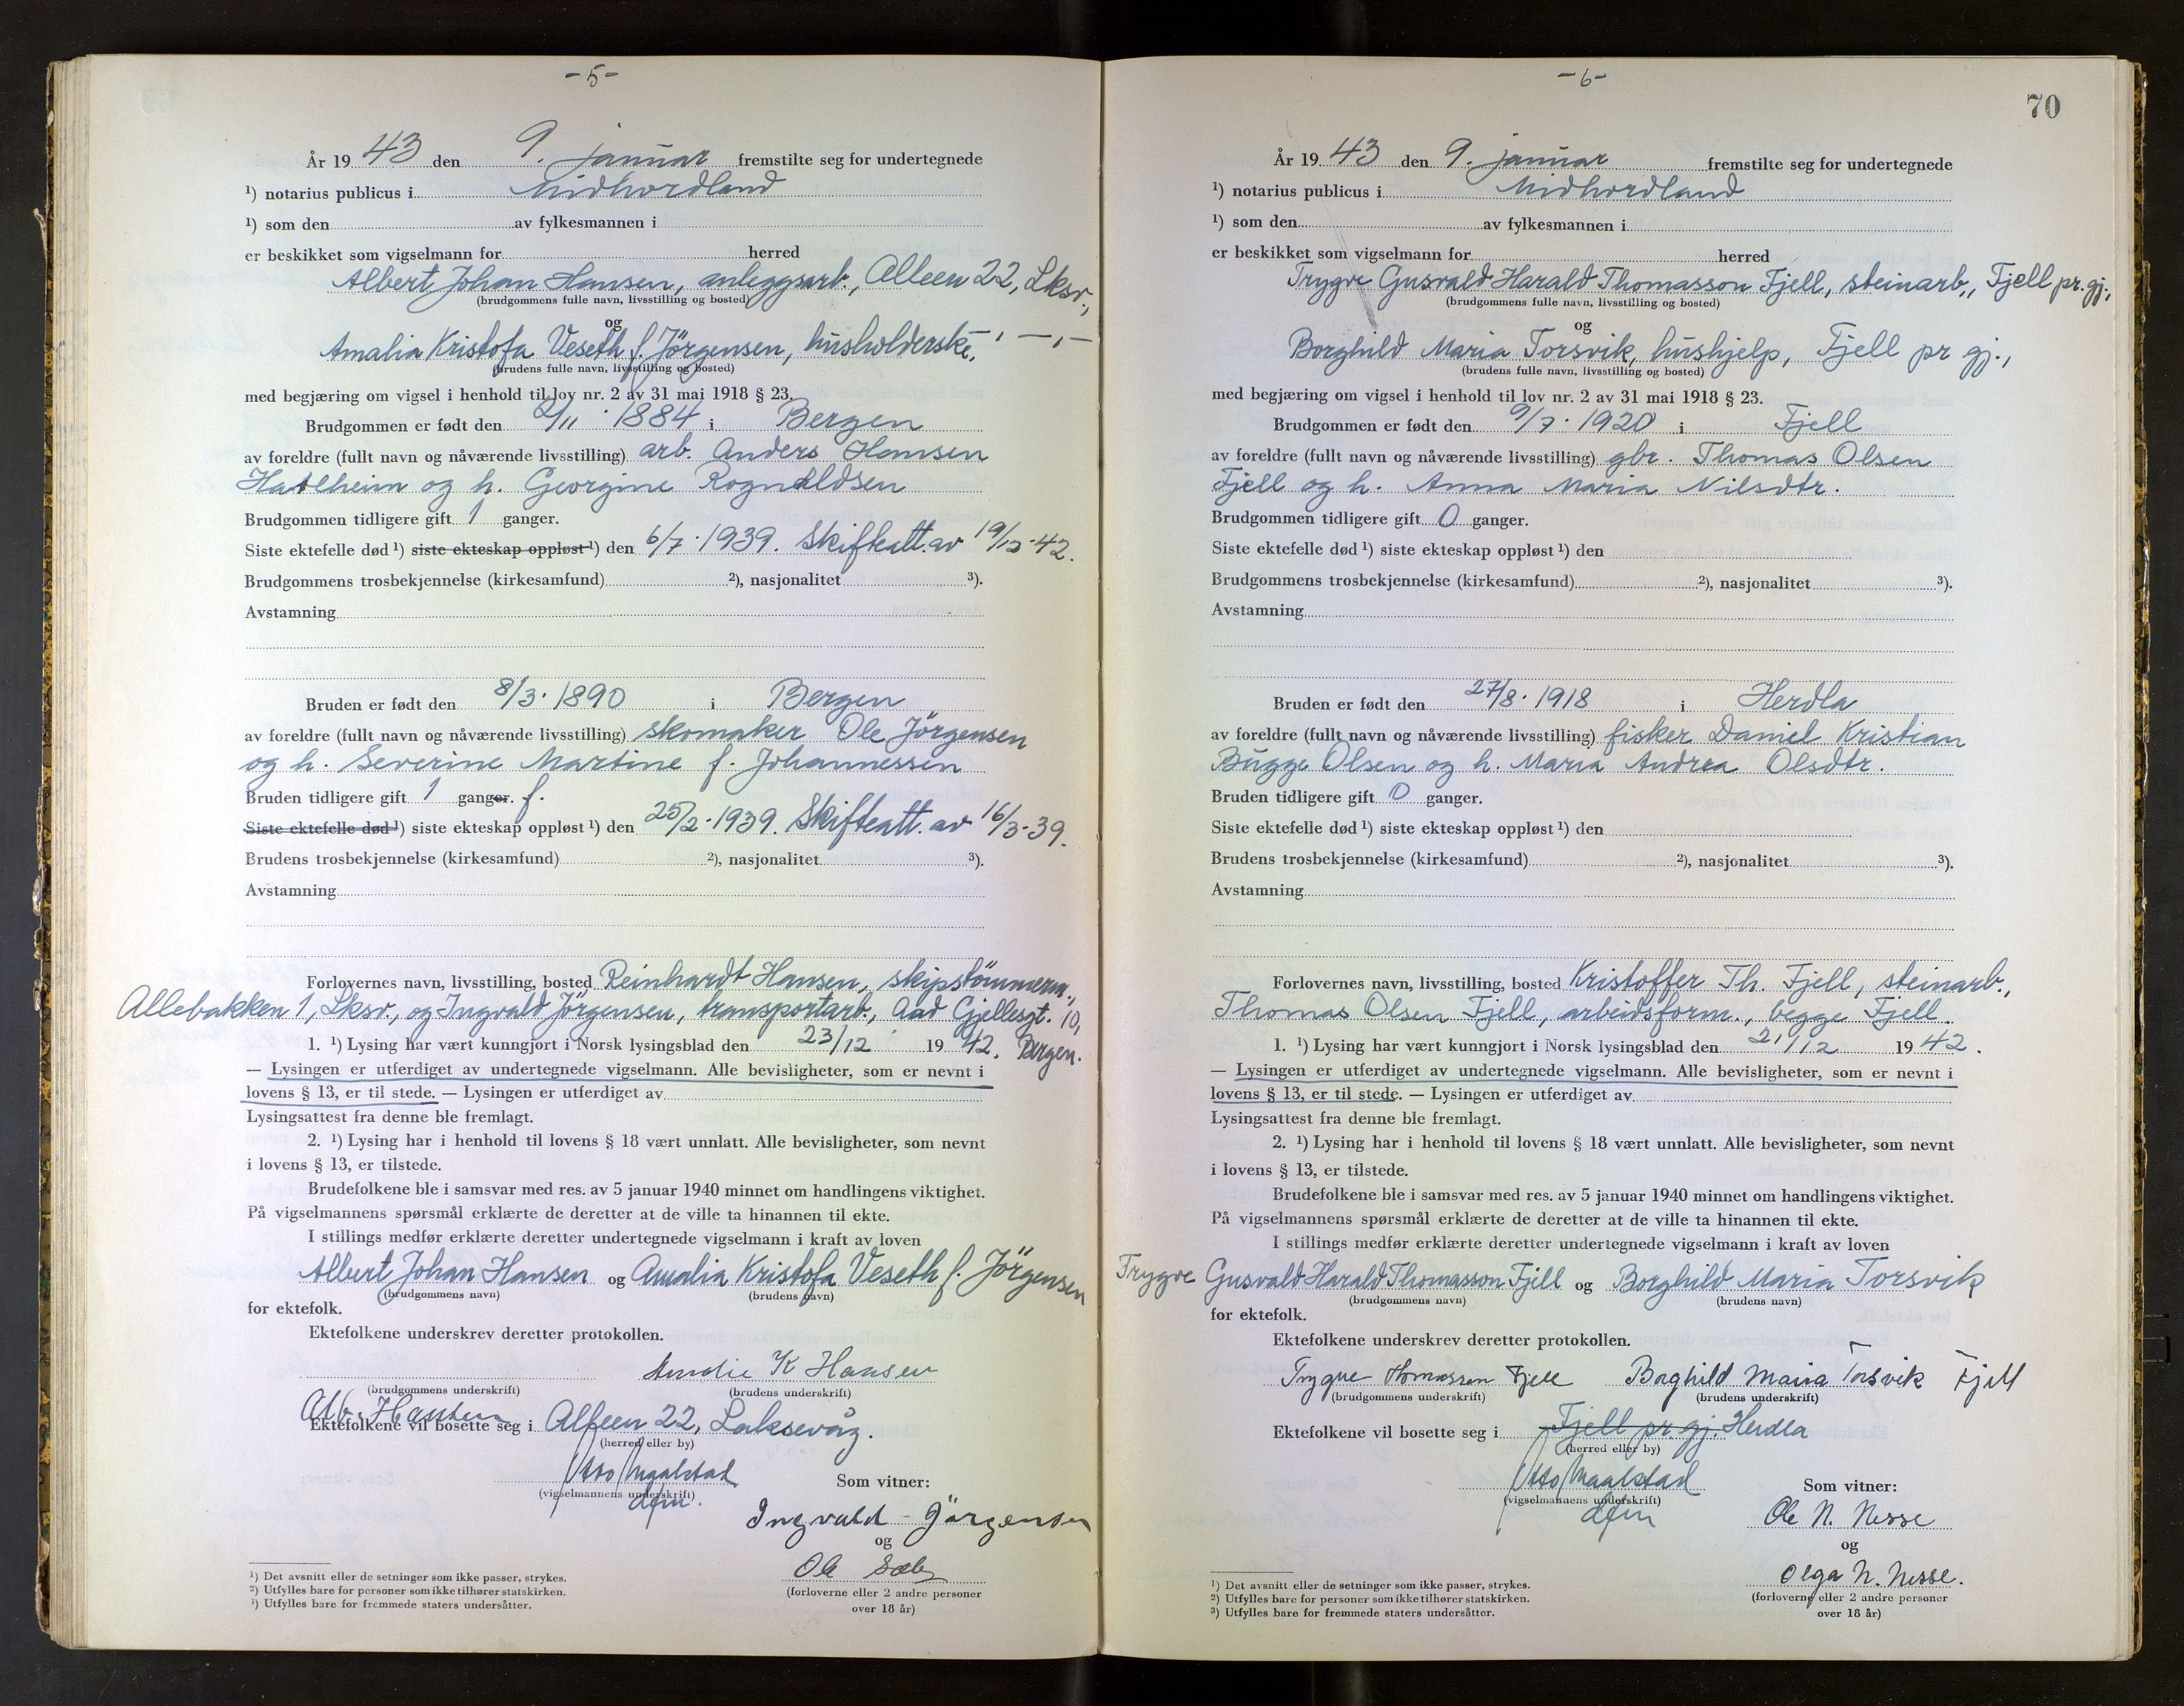 -5-
År 19 43 den 9. januar fremstilte seg for undertegnede
¹) notarius publicus i Midhordland
¹) som den av fylkesmannen i
er beskikket som vigselmann for herred
Albert Johan Hansen, anleggsarb., Alleen 22, Lksv.,
(brudgommens fulle navn, livsstilling og bosted)
og
Amalia Kristofa Veseth f. Jörgensen, husholderske, — " — , —
(brudens fulle navn, livsstilling og bosted)
med begjæring om vigsel i henhold til lov nr. 2 av 31 mai 1918 § 23.
Brudgommen er født den /11 · 1884 i Bergen
av foreldre (fullt navn og nåværende livsstilling) arb. Anders Hansen
Hatleheim og h. Georgine Rognaldsen
Brudgommen tidligere gift 1 ganger.
Siste ektefelle død ¹) siste ekteskap oppløst ¹) den 6/7 · 1939. Skifteatt. av 19/12-42.
Brudgommens trosbekjennelse (kirkesamfund) ²), nasjonalitet ³).
Avstamning
Bruden er født den 8/3 · 1890 i Bergen
av foreldre (fullt navn og nåværende livsstilling) skomaker Ole Jörgensen
og h. Severine Martine f. Johannessen
Bruden tidligere gift 1 ganger. f.
Siste ektefelle død ¹) siste ekteskap oppløst ¹) den 25/2 · 1939. Skifteatt. av 16/3-39.
Brudens trosbekjennelse (kirkesamfund) ²), nasjonalitet ³).
Avstamning
Forlovernes navn, livsstilling, bosted Reinhardt Hansen, skipstömmerm.,
Allebakken 1, Lksv., og Ingvald Jörgensen, transportarb., Aad Gjellesgt. 10,
1. ¹) Lysing har vært kunngjort i Norsk lysingsblad den 23/12 19 42. Bergen.
— Lysingen er utferdiget av undertegnede vigselmann. Alle bevisligheter, som er nevnt i
lovens § 13, er til stede. — Lysingen er utferdiget av
Lysingsattest fra denne ble fremlagt.
2. ¹) Lysing har i henhold til lovens § 18 vært unnlatt. Alle bevisligheter, som nevnt
i lovens § 13, er tilstede.
Brudefolkene ble i samsvar med res. av 5 januar 1940 minnet om handlingens viktighet.
På vigselmannens spørsmål erklærte de deretter at de ville ta hinannen til ekte.
I stillings medfør erklærte deretter undertegnede vigselmann i kraft av loven
Albert Johan Hansen og Amalia Kristofa Veseth f. Jörgensen
(brudgommens navn) (brudens navn)
for ektefolk.
Ektefolkene underskrev deretter protokollen.
Amalie K Hansen
(brudgommens underskrift) (brudens underskrift)
Alb. Hansen
Ektefolkene vil bosette seg i Alleen 22, Laksevåg.
(herred eller by)
Otto Maalstad
(vigselmannens underskrift)
dfm.
Som vitner:
Ingvald Jörgensen
og
Ole
(forloverne eller 2 andre personer
over 18 år)
¹) Det avsnitt eller de setninger som ikke passer, strykes.
²) Utfylles bare for personer som ikke tilhører statskirken.
³) Utfylles bare for fremmede staters undersåtter.
-6-
70
År 19 43 den 9. januar fremstilte seg for undertegnede
¹) notarius publicus i Midhordland
¹) som den av fylkesmannen i
er beskikket som vigselmann for herred
Trygve Gusvald Harald Thomasson Fjell, steinarb., Fjell pr. gj.,
(brudgommens fulle navn, livsstilling og bosted)
og
Borghild Maria Torsvik, hushjelp, Fjell pr gj.,
(brudens fulle navn, livsstilling og bosted)
med begjæring om vigsel i henhold til lov nr. 2 av 31 mai 1918 § 23.
Brudgommen er født den 9/7 · 1920 i Fjell
av foreldre (fullt navn og nåværende livsstilling) gbr. Thomas Olsen
Fjell og h. Anna Maria Nilsdtr.
Brudgommen tidligere gift 0 ganger.
Siste ektefelle død ¹) siste ekteskap oppløst ¹) den
Brudgommens trosbekjennelse (kirkesamfund) ²), nasjonalitet ³).
Avstamning
Bruden er født den 27/8 · 1918 i Herdla
av foreldre (fullt navn og nåværende livsstilling) fisker Daniel Kristian
Bugge Olsen og h. Maria Andrea Olsdtr.
Bruden tidligere gift 0 ganger.
Siste ektefelle død ¹) siste ekteskap oppløst ¹) den
Brudens trosbekjennelse (kirkesamfund) ²), nasjonalitet ³).
Avstamning
Forlovernes navn, livsstilling, bosted Kristoffer Th. Fjell, steinarb.,
Thomas Olsen Fjell, arbeidsform., begge Fjell.
1. ¹) Lysing har vært kunngjort i Norsk lysingsblad den 21/12 19 42.
— Lysingen er utferdiget av undertegnede vigselmann. Alle bevisligheter, som er nevnt i
lovens § 13, er til stede. — Lysingen er utferdiget av
Lysingsattest fra denne ble fremlagt.
2. ¹) Lysing har i henhold til lovens § 18 vært unnlatt. Alle bevisligheter, som nevnt
i lovens § 13, er tilstede.
Brudefolkene ble i samsvar med res. av 5 januar 1940 minnet om handlingens viktighet.
På vigselmannens spørsmål erklærte de deretter at de ville ta hinannen til ekte.
I stillings medfør erklærte deretter undertegnede vigselmann i kraft av loven
Trygve Gusvald Harald Thomasson Fjell og Borghild Maria Torsvik
(brudgommens navn) (brudens navn)
for ektefolk.
Ektefolkene underskrev deretter protokollen.
Trygve Thomassen Fjell Borghild Maria Torsvik Fjell
(brudgommens underskrift) (brudens underskrift)
Ektefolkene vil bosette seg i Fjell pr. gj. Herdla
(herred eller by)
Otto Maalstad
(vigselmannens underskrift)
dfm
Som vitner:
Ole N. Nesse
og
Olga N. Nesse.
(forloverne eller 2 andre personer
over 18 år)
¹) Det avsnitt eller de setninger som ikke passer, strykes.
²) Utfylles bare for personer som ikke tilhører statskirken.
³) Utfylles bare for fremmede staters undersåtter.